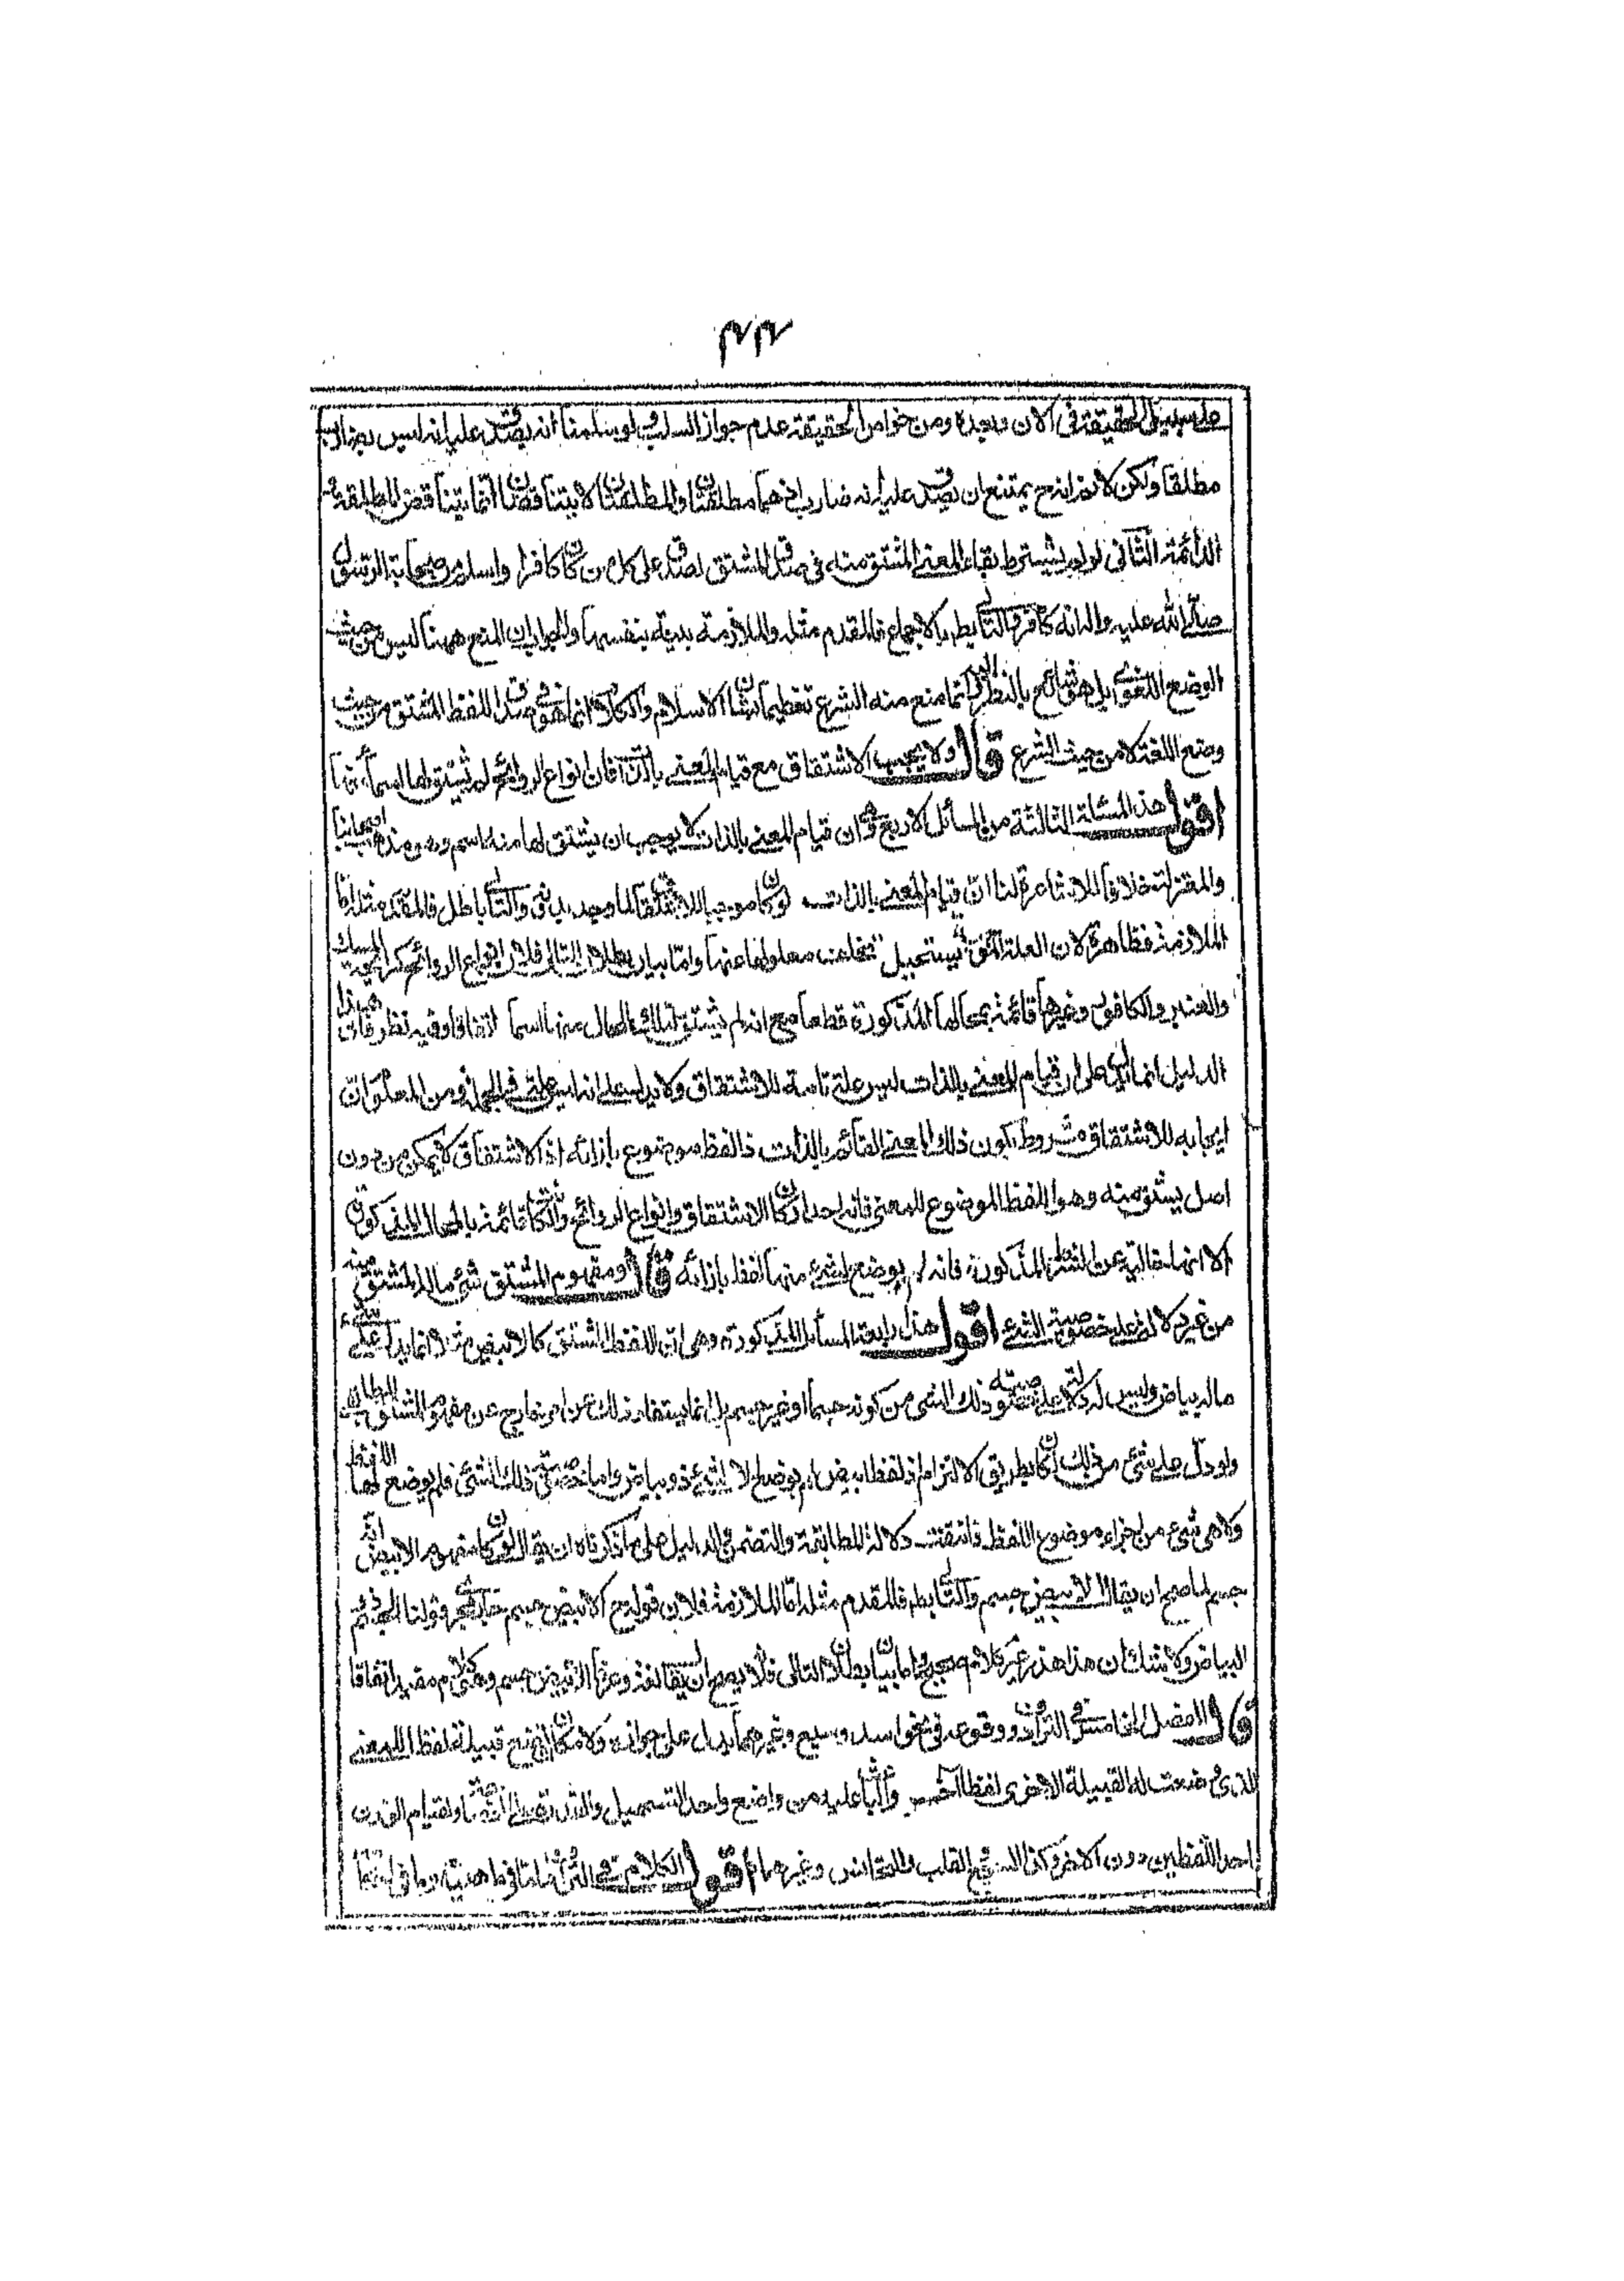 ٢٢
على سبيل الحقيقة في الان وبعده ومن خواص الحقيقة عدم جواز السلب لو سلمنا انه يصدق عليه انه ليس بضارب
مطلقا ولكن لا نم انه ح يمتنع ان يصدق عليه انه ضارب اذ هما مطلقتان والمطلقتان لا يتناقضان انما يتناقض المطلقة
الدائمة الثاني لو لم يشترط بقاء المعنى المشتق منه في صدق المشتق لصدق على كل من كان كافرا واسلم من صحابة الرسول
صلى الله عليه واله انه كافر والتالي بط بالاجماع فالمقدم مثله والملازمة بينة بنفسها والجواب ان المنع ههنا ليس من حيث
الوضع اللغوي بل هو شائع بالنظر اليه انما منع منه الشرع تعظيما لشان الاسلام والكلام انما هو في صدق اللفظ المشتق من حيث
وضع اللغة لا من حيث الشرع قال ولا يجب الاشتقاق مع قيام المعنى بالذات فان انواع الروائح لم يشتق لها اسماء منها
اقول هذه المسئلة الثالثة من المسائل الاربع وهي ان قيام المعنى بالذات لا يوجب ان يشتق لها منه اسم وهو مذهب اصحابنا
والمعتزلة خلافا للاشاعرة لنا ان قيام المعنى بالذات لو كان موجبا للاشتقاق لما وجد بدونه والتالي باطل فالمقدم مثله اما
الملازمة فظاهرة لان العلة التامة يستحيل تخلف معلولها عنها واما بيان بطلان التالي فلان انواع الروائح كرائحة المسك
والعنبر والكافور وغيرها قائمة بمحالها المذكورة قطعا مع انه لم يشتق لتلك المحال منها اسما اتفاقا وفيه نظر فان هذا
الدليل انما يدل على ان قيام المعنى بالذات ليس علة تامة للاشتقاق ولا يدل على انه ليس علة في الجملة ومن المعلوم ان
ايجابه للاشتقاق مشروط بكون ذلك المعنى القائم بالذات ذا لفظ موضوع بازائه اذ الاشتقاق لا يمكن من دون
اصل يشتق منه وهو اللفظ الموضوع للمعنى فانه احد اركان الاشتقاق وانواع الروائح وان كانت قائمة بالمحال المذكورة
الا انها خالية عن الشرط المذكور فانه لم يوضع لشيء منها لفظ بازائه قال ومفهوم المشتق شيء ما له المشتق منه
من غير دلالة على خصوصية الشيء اقول هذا رابعة المسائل المذكورة وهي ان اللفظ المشتق كالابيض مثلا انما يدل على شيء
ما له بياض وليس له دلالة على خصوصية ذلك الشيء من كونه جسما او غير جسم بل انما يستفاد ذلك من امر خارج عن مفهوم المشتق بالمطابقة
ولو دل على شيء من ذلك لكان بطريق الالتزام اذ لفظ ابيض لم يوضع الا لشيء ذو بياض واما خصوصية ذلك الشيء فلم يوضع لها اللفظ
ولا هي شيء من اجزاء موضوع اللفظ فانتفت دلالة المطابقة والتضمن والدليل على ما ذكرناه ان يقال لو كان مفهوم الابيض انه
جسم لما صح ان يقال الابيض جسم والتالي بط فالمقدم مثله اما الملازمة فلان قولنا ح الابيض جسم جار مجرى قولنا الجسم ذو
البياض ولا شك ان هذا هذر غير كلام صحيح واما بيان بطلان التالي فلانه يصح ان يقال لغة وعرفا الابيض جسم وهو كلام مفيد اتفاقا
قال الفصل الخامس في الترادف ووقوعه في نحو اسد وسبع وغيرهما يدل على جوازه ولامكان ان تضع قبيلة لفظا للمعنى
الذي وضعت له القبيلة الاخرى لفظا اخر والباعث عليه من واضع واحد التسهيل والقدرة على الفصاحة ولقيام الوزن
احد اللفظين دون الاخر وكذا السجع والقلب والتجانس وغيرها اقول الكلام في الترادف اما في ماهيته واما في اثباتها